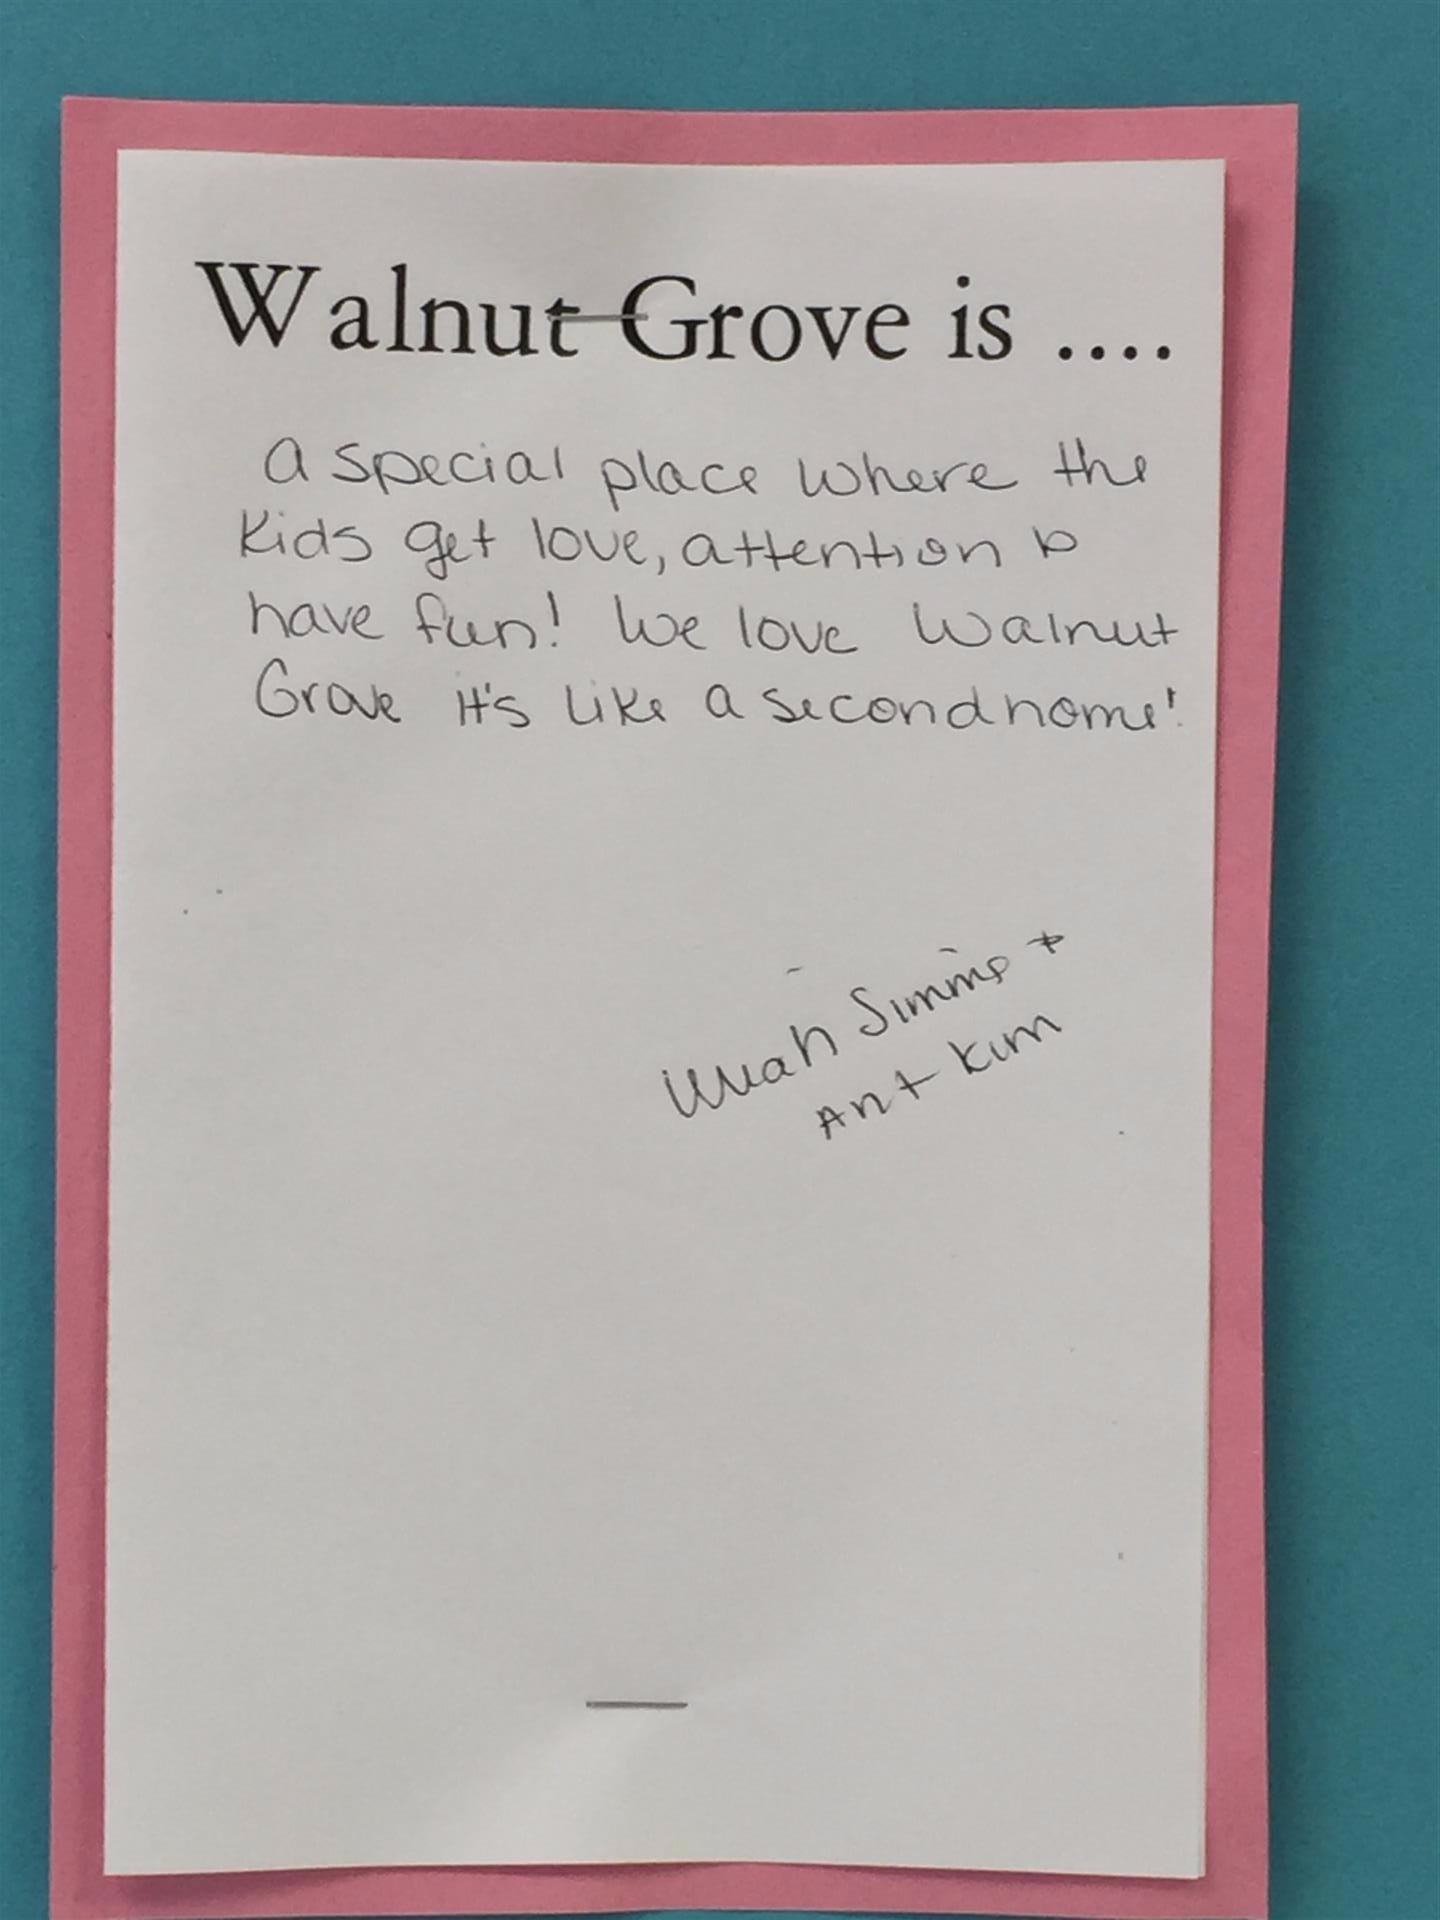 Walnut Grove is ....
a special place where the
kids get love, attention &
have fun! We love Walnut
Grove it's like a second home!
Simms +
Ant Kim